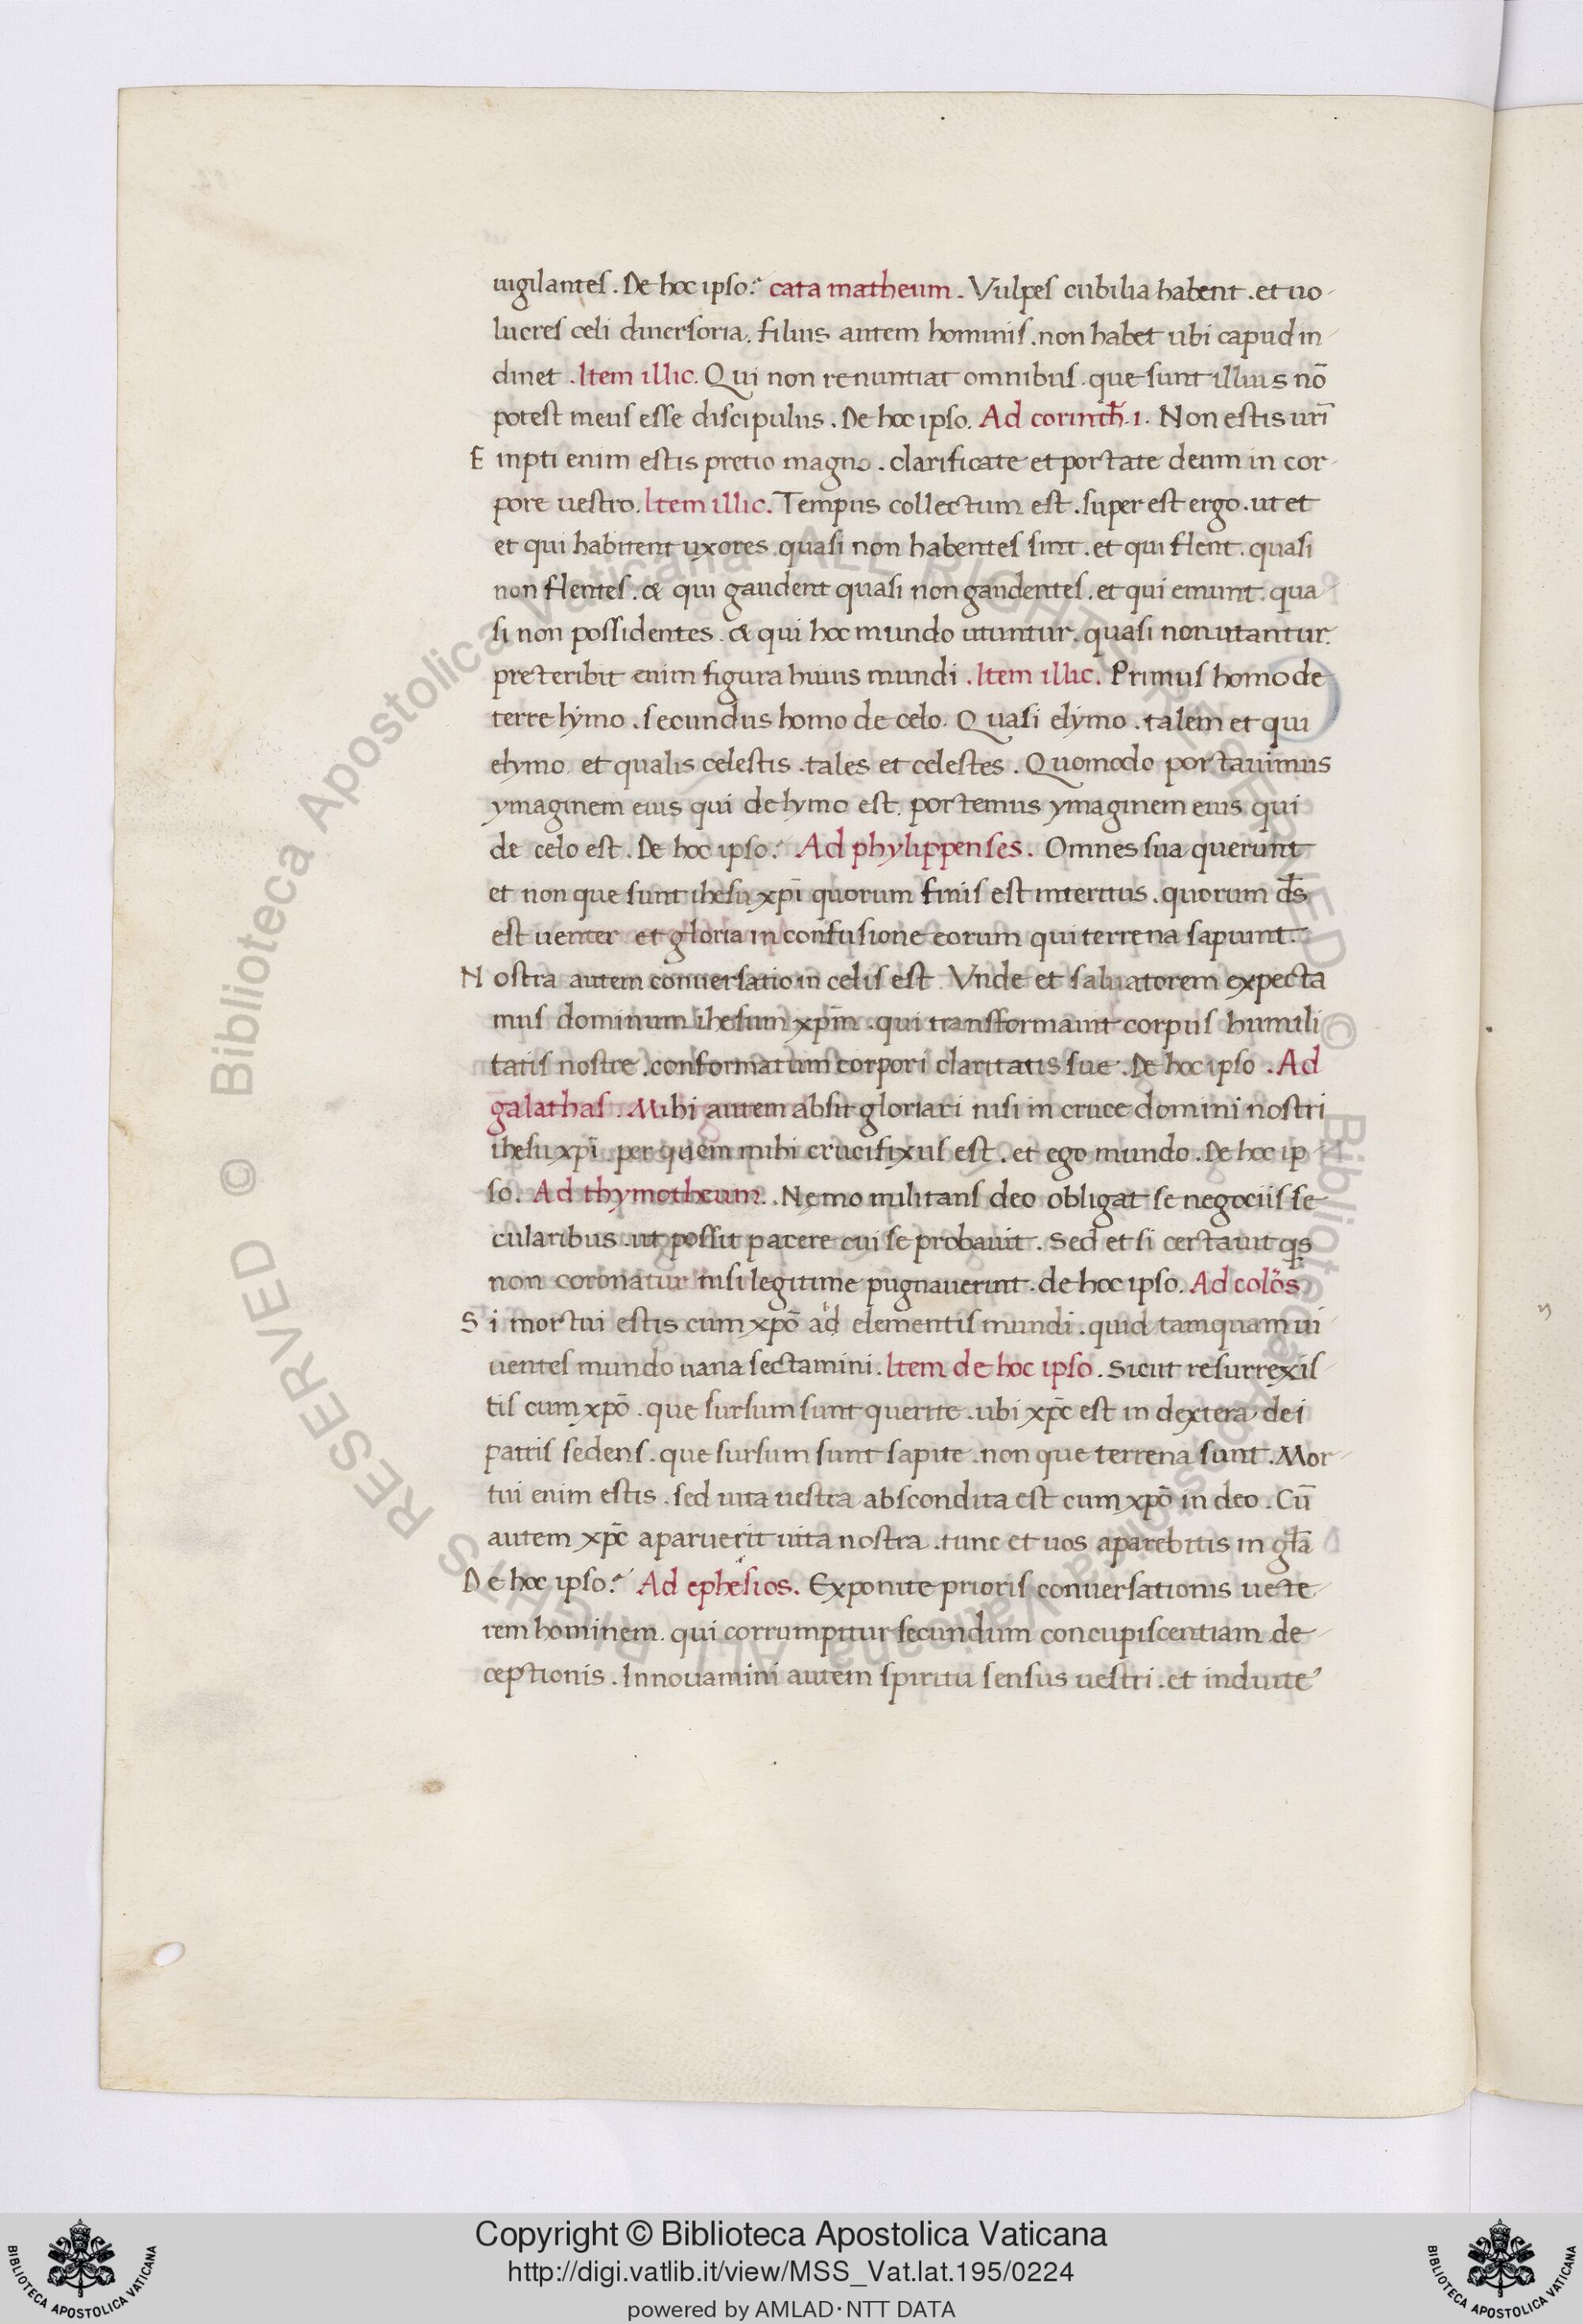 uigilantes . De hoc ipso : cata matheum . Vulpes cubilia habent . et uo
lucres celi diuersoria . filius autem hominis . non habet ubi capud in
clinet . Item illic . Qui non renuntiat omnibus . que sunt illius nō
potest meus esse discipulus . De hoc ipso . Ad corinth̄ . 1 . Non estis ur̄i
E mpti enim estis pretio magno . clarificate et portate deum in cor
pore uestro . Item illic . Tempus collectum est . super est ergo . ut et
et qui habitent uxores . quasi non habentes sint . et qui flent . quasi
non flentes . & qui gaudent quasi non gaudentes . et qui emunt . qua
si non possidentes . & qui hoc mundo utuntur . quasi non utantur .
preteribit enim figura huius mundi . Item illic . Primus homo de
terre lymo . secundus homo de celo . Quasi elymo . talem et qui
elymo . et qualis celestis . tales et celestes . Quomodo portauimus
ymaginem eius qui de lymo est . portemus ymaginem eius qui
de celo est . De hoc ipso : Ad phylippenses . Omnes sua querunt
et non que sunt ihesu xp̄i quorum finis est interitus . quorum d̄s
est uenter . et gloria in confusione eorum qui terrena sapiunt .
N ostra autem conuersatio in celis est . Vnde et saluatorem expecta
mus dominum ihesum xp̄m . qui transformauit corpus humili
tatis nostre . conformatum corpori claritatis sue . De hoc ipso . Ad
galathas . Mihi autem absit gloriari nisi in cruce domini nostri
ihesu xp̄i . per quem mihi crucifixus est . et ego mundo . De hoc ip
so . Ad thymotheum . Nemo militans deo obligat se negociis se
cularibus . ut possit pacere cui se probauit . Sed et si certauit qs
non coronatur nisi legitime pugnauerint . de hoc ipso . Ad colōs
S i mortui estis cum xpō ad elementis mundi . quid tamquam ui
uentes mundo uana sectamini . Item de hoc ipso . Sicut resurrexis
tis cum xpō . que sursum sunt querite . ubi xp̄c est in dextera dei
patris sedens . que sursum sunt sapite . non que terrena sunt . Mor
tui enim estis . sed uita uestra abscondita est cum xpō in deo . Cū
autem xp̄c aparuerit uita nostra . tunc et uos aparebitis in gl̄a
D e hoc ipso : Ad ephesios . Exponite prioris conuersationis uete
rem hominem . qui corrumpitur secundum concupiscentiam de
ceptionis . Innouamini autem spiritu sensus uestri . et induite
© Biblioteca Apostolica Vaticana ALL RIGHTS RESERVED
© Biblioteca Apostolica Vaticana ALL RIGHTS RESERVED
Copyright © Biblioteca Apostolica Vaticana
http://digi.vatlib.it/view/MSS_Vat.lat.195/0224
powered by AMLAD·NTT DATA
BIBLIOTECA APOSTOLICA VATICANA
BIBLIOTECA APOSTOLICA VATICANA